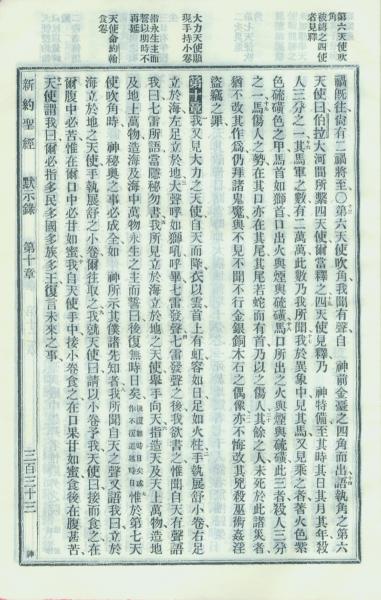 第六天使吹
角
後縛之四使
者見釋
大力天使顯
現手持小卷
指永生主而
誓以明時不
再延
天使命約翰
食卷
禍既往尚有二禍將至○第六天使吹角我聞有聲自　神前金臺之四角而出語執角之第六
天使曰伯拉大河間所繫四天使爾當釋之四天使見釋乃　神特備至其時其日其月其年殺
人三分之一其馬軍之數有二萬萬此數乃我所聞我於異象中見其馬又見乘之者著火色紫
色硫磺色之甲馬首如獅首口出火與煙與硫磺馬口所出之火與煙與硫磺此三者殺人三分
之一馬傷人之勢在其口亦在其尾其尾若蛇而有首乃以之傷人其餘之人未死於此諸災者
猶不改其作爲仍拜諸鬼魔與不見不聞不行金銀銅木石之偶像亦不悔改其兇殺巫術姦淫
盜竊之罪
第十章 我又見大力之天使自天而降衣以雲首上有虹容如日足如火柱手執展舒小卷右足
立於海左足立於地大聲呼如獅吼呼畢七雷發聲七雷發聲之後我欲書之惟聞自天有聲語
我曰七雷所語當隱秘勿書我所見立於海立於地之天使舉手向天指造天及天上萬物造地
及地上萬物造海及海中萬物永生之主而誓曰後復無時日矣 惟於第七天
使吹角時　神秘奧之事必成全如　神所示其僕諸先知者我所聞自天之聲又語我曰立於
海立於地之天使手執展舒之小卷爾往取之我就天使曰請以小卷予我天使曰接而食之在
爾腹中必苦惟在爾口中必甘如蜜我自天使手中接小卷食之在口果甘如蜜食後在腹甚苦
天使謂我曰爾必指多民多國多族多王復言未來之事
新約聖經 默示錄 第十章 三百三十三 神